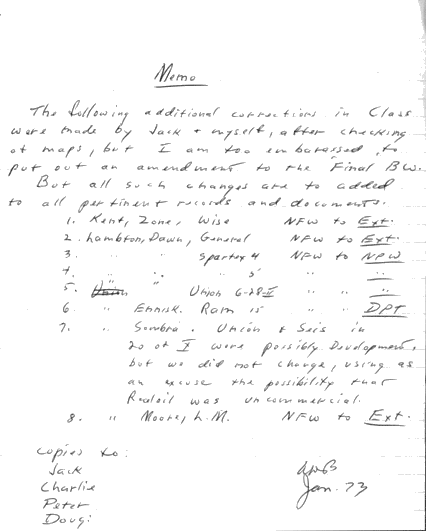 Memo
The following additional corrections in Class
were made by Jack + myself, after checking
of maps, but I am too embarassed to
put out an amendment to the Final BW.
But all such changes are to added
to all pertinent records and documents.
1. Kent, Zone, Wise NFW to Ext.
2. Lambton, Dawn, General NFW to Ext.
3. " " Spartex 4 NFW to NPW
4. " " " 5 " " "
5. " Union 6-28-II " " "
6. " Ennisk. Ram 15 " " DPT
7. " Sombra. Union & Seis in
20 of X were possibly Development,
but we did not change, using as
an excuse the possibility that
Redoil was uncommercial.
8. " Moore, L.M. NFW to Ext.
Copies to:
Jack
Charlie
Peter
Doug:
Jan. 73